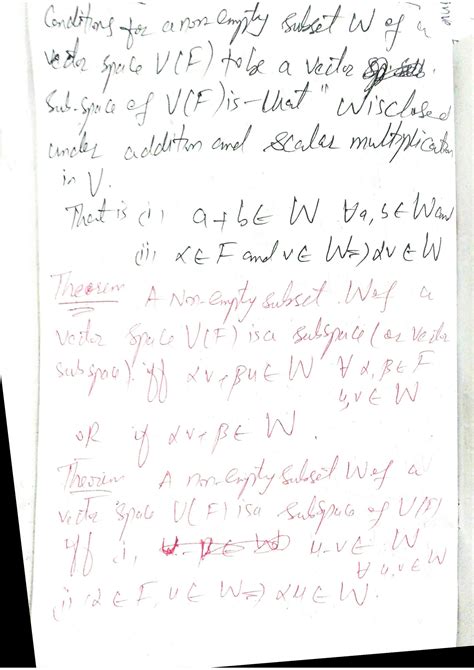 Conditions for a non empty subset W of a
vector space V(F) to be a vector
Sub-space of V(F) is that "W is closed
under addition and scalar multiplication
in V.
That is (i) a+b ∈ W ∀ a, b ∈ W and
(ii) α ∈ F and v ∈ W => αv ∈ W
Theorem A Non-empty subset W of a
vector space V(F) is a subspace (or vector
subspace) iff αv+βu ∈ W ∀ α, β ∈ F
u, v ∈ W
OR if αv+β ∈ W.
Theorem A non-empty subset W of a
vector space V(F) is a subspace of V(F)
iff (i) u-v ∈ W
∀ u, v ∈ W
(ii) α ∈ F, u ∈ W => αu ∈ W.